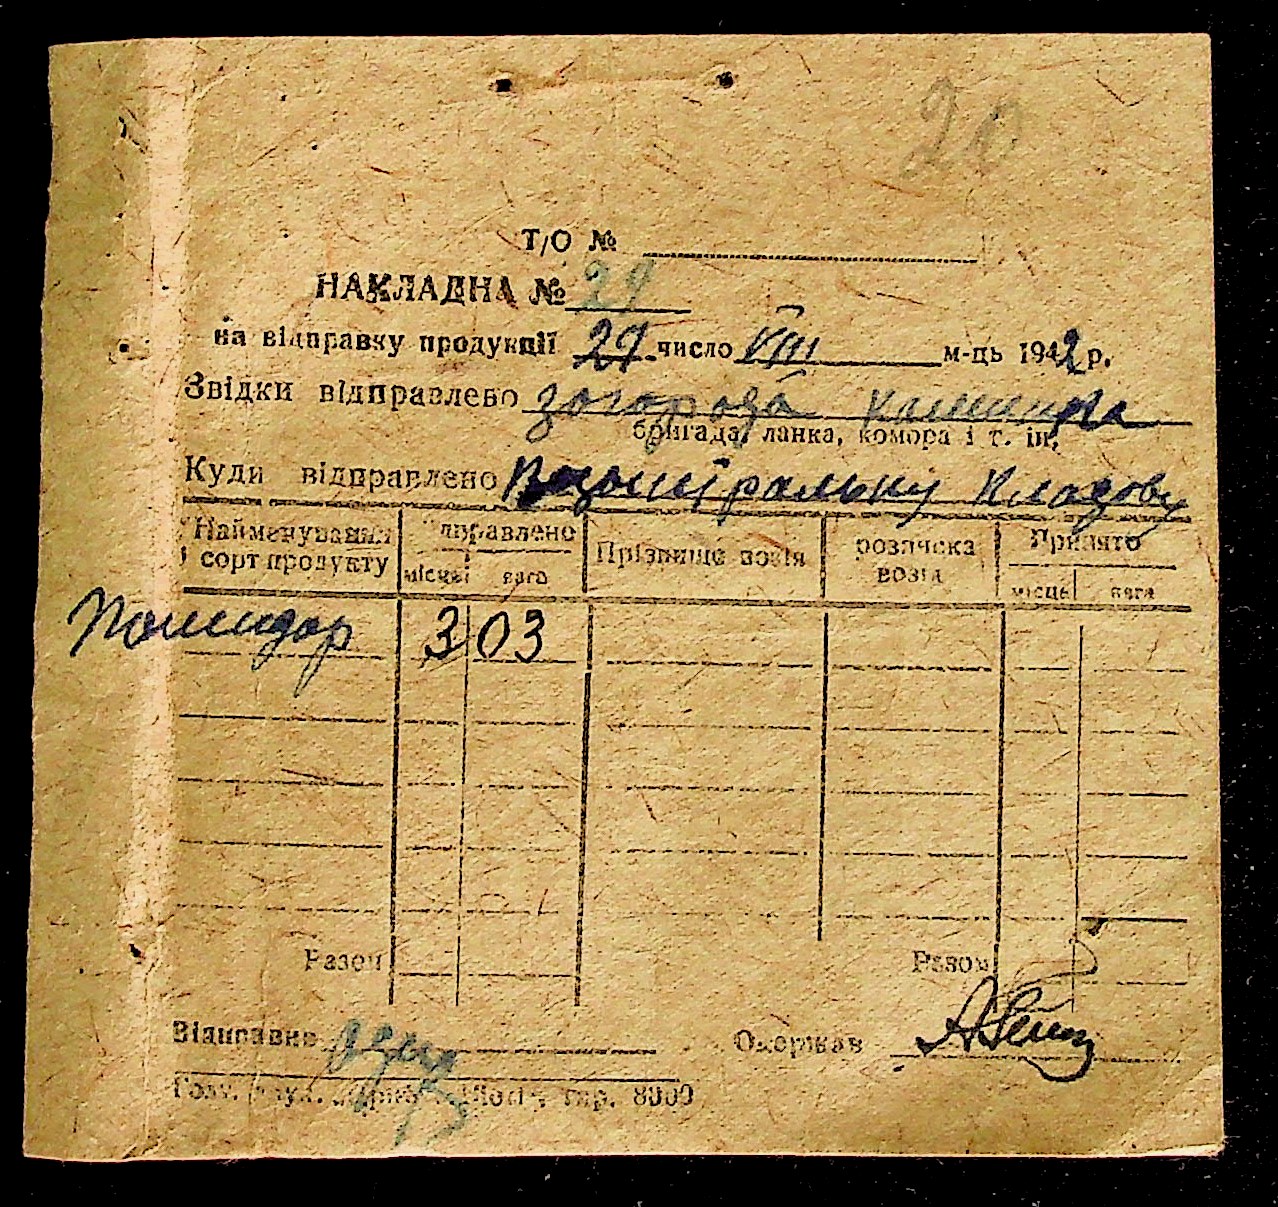 20
Т/О №
НАКЛАДНА № 29
на відправку продукції 29 число VIII м-ць 1942 р.
Звідки відправлено загорода
бригада, ланка, комора і т. ін.
Куди відправлено Кладову
Найменування і сорт продукту
відправлено
місць вага
Прізвище возія
розписка возія
Прийнято
місць вага
Помидор 303
Разом Разом
Відправив
Одержав
тир. 8000